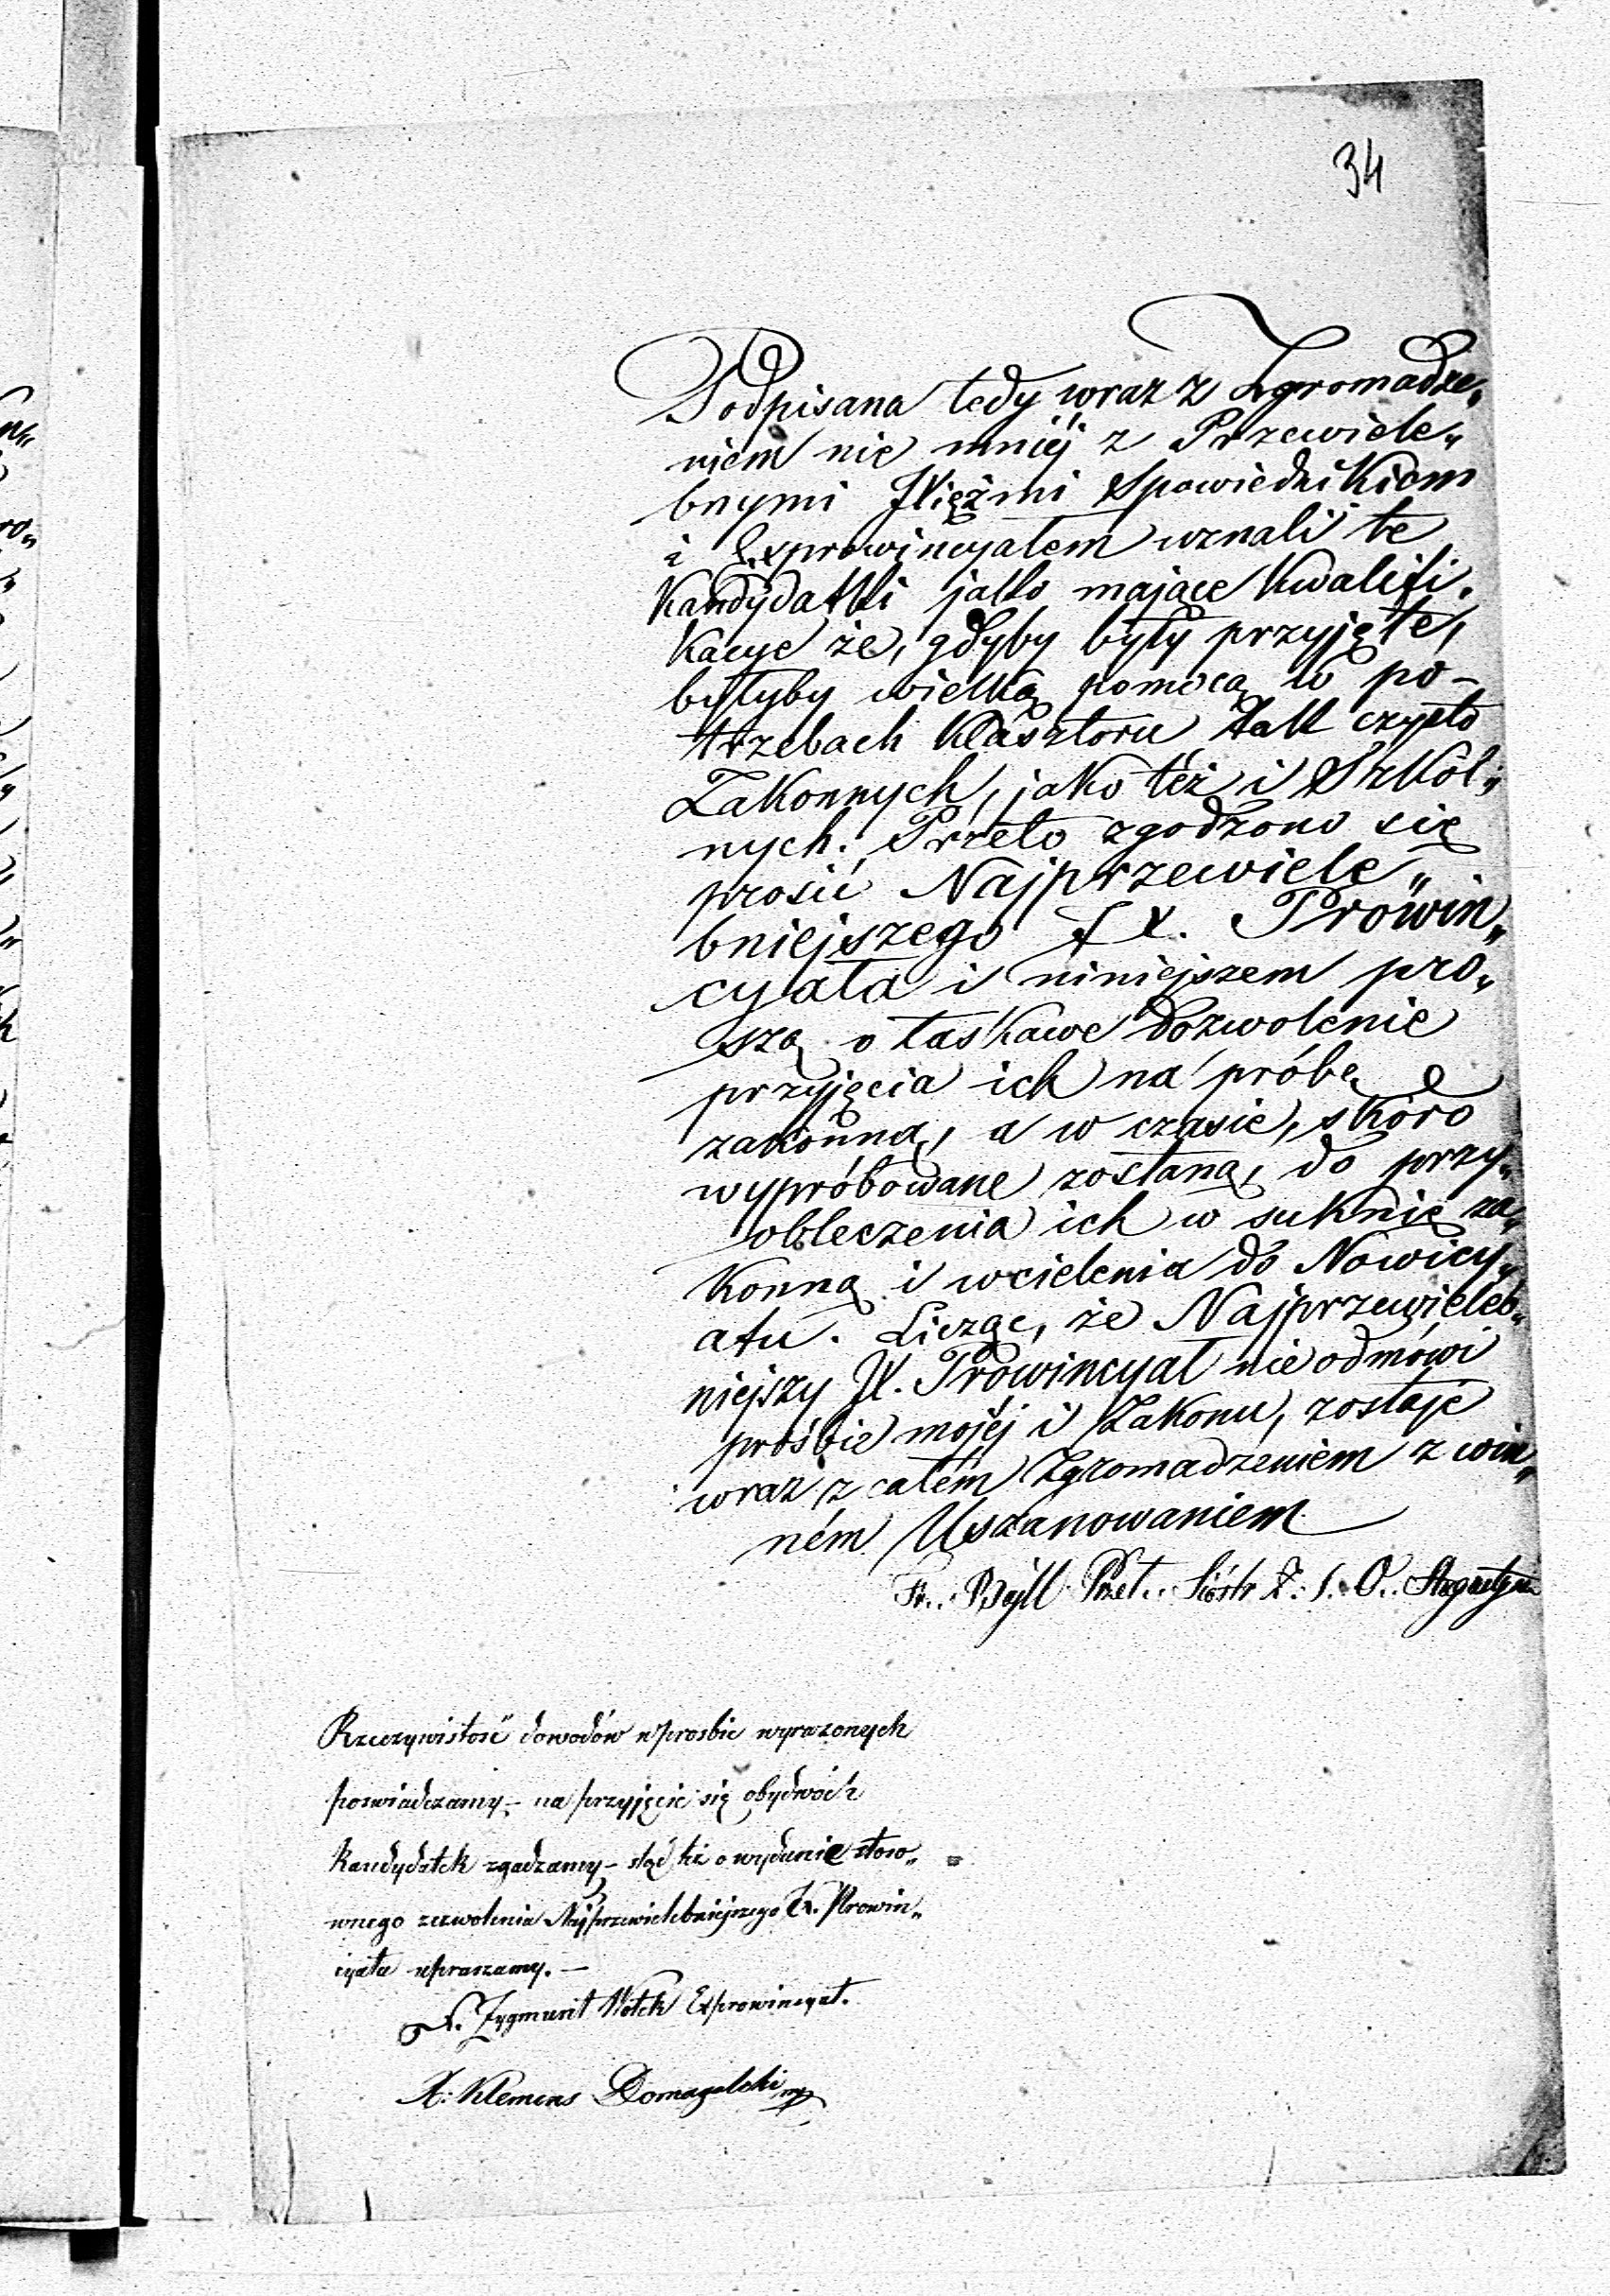 34
Podpisana tedy wraz z Zgromadze„
niem nie mniéj z Przewiele„
bnymi Xiężmi Spowiednikiem
i Exprowincyałem uznali te
Kandydatki jako mające Kwalifi„
kacye że, gdyby były przyjęte,
byłyby wielką pomocą w po-
trzebach Klasztoru tak czysto
Zakonnych, jako też i Szkol„
nych. Przeto zgodzono się
prosić Najprzewiele„
bniejszego X. Prowin„
cyała i niniejszem pro„
szą o łaskawe dozwolenie
przyjęcia ich na próbę
zakonną, a w czasie, skoro
wypróbowane zostaną, do przy„
obleczenia ich w suknię za„
konną i wcielenia do Nowicy„
atu. Licząc, że Najprzewieleb„
niejszy X. Prowincyał nie odmówi
prośbie mojéj i Zakonu, zostaję
wraz z całém Zgromadzeniem z win„
ném Uszanowaniem
Sióstr Z. S. O.
Rzeczywistość dowodów w prośbie wyrażonych
poswiadczamy, – na przyjęcie się obydwóch
kandydatek zgadzamy – stąd też o wydanie stoso„
wnego zezwolenia Najprzewielebniejszego X. Prowin„
cyała upraszamy. –
X. Zygmunt Exprowincyał.
X. Klemens Domagalski mp